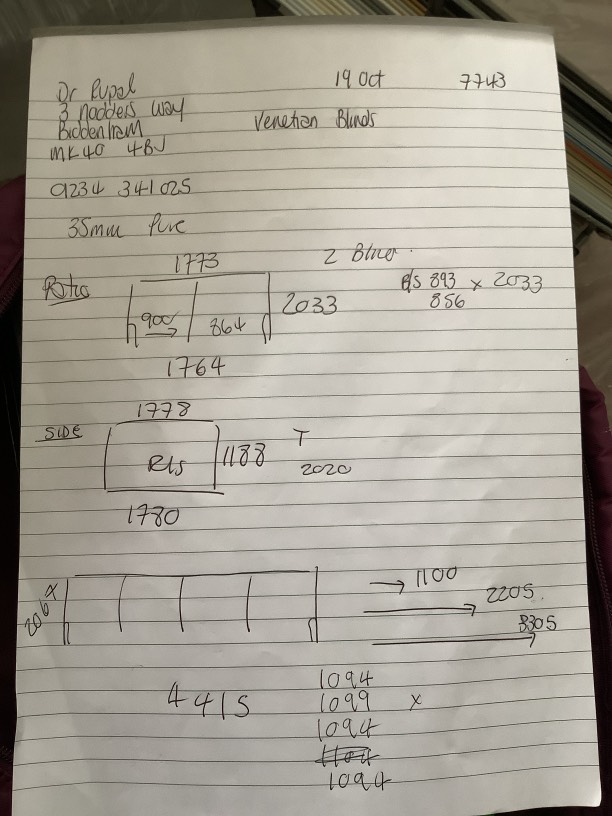 Dr Rupal 19 Oct 7743
3 nodders way
Biddenham Venetian Blinds
MK40 4BJ
0234 341025
35mm Pure
1773 2 Blind
Patio R/S 893 x 2033
900 864 2033 856
1764
1778
SIDE R/S 1188 T
2020
1780
1100
2205
3305
4415 1094
1099 x
1094
1104
1094